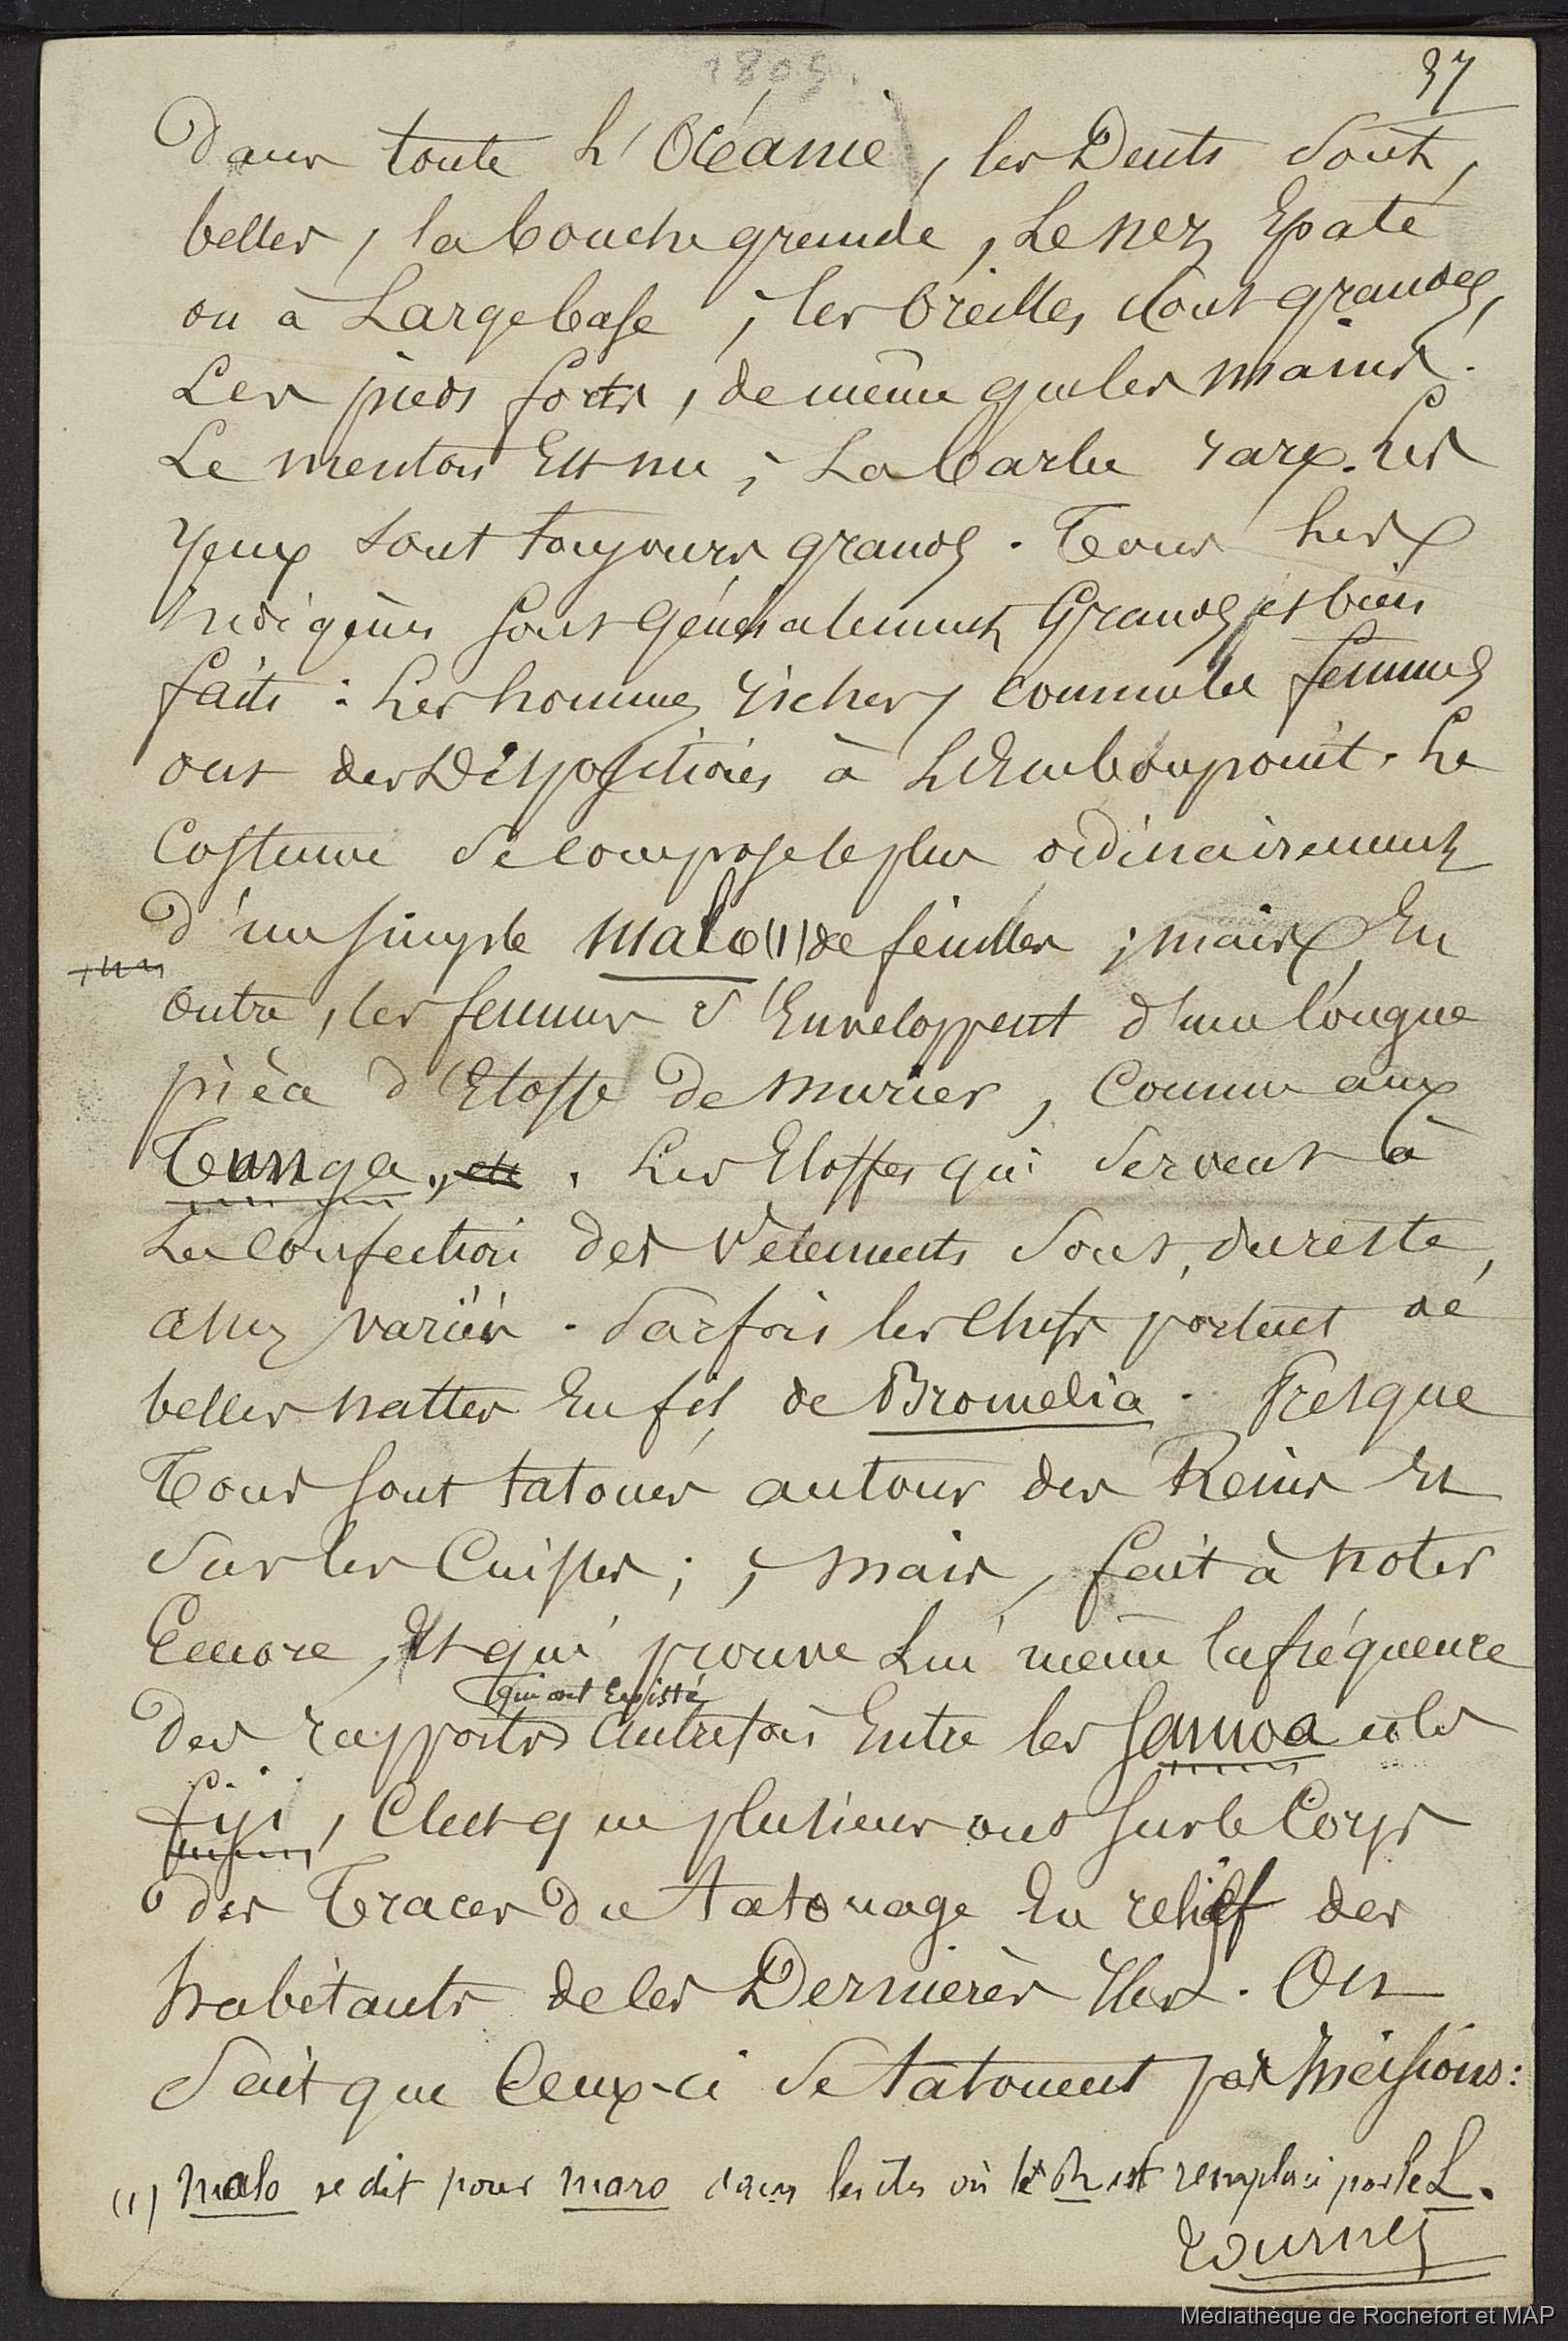 1805.
37
Dans toute L'Océanie, les Dents sont,
belles, la bouche grande, Le nez Epaté
ou à Large base, les Oreilles sont grandes,
Les pieds forts, de même que les mains.
Le menton Est nu, La barbe rare. Les
yeux sont toujours grands. Tous Les
Indigènes sont Généralement Grands et bien
faits : Les hommes riches, comme les femmes
ont des Dispositions à L'Embonpoint. Le
Costume se compose le plus ordinairement
d'un simple malo (1) de feuilles ; mais En
outre, les femmes s'Enveloppent d'une longue
pièce d'Etoffe de murier, Comme aux
Tunga, etc. Les Etoffes qui servent à
La confection des Vêtements sont, du reste,
assez variées. Parfois les Chefs portent de
belles nattes En fil de Bromelia. Presque
Tous sont tatoués autour des Reins Et
sur les Cuisses ; , mais, fait à noter
Encore, Et qui prouve Lui même la fréquence
qui ont Existé
des rapports autrefois Entre les Samoa et les
Fiji, C'est que plusieurs ont sur le Corps
des Traces du Tatouage En relief des
habitants de les Dernières Iles. On
sait que Ceux-ci se tatouent par Incisions :
(1) malo se dit pour maro dans les îles où le R est remplacé par le L.
Tournez
Médiathèque de Rochefort et MAP